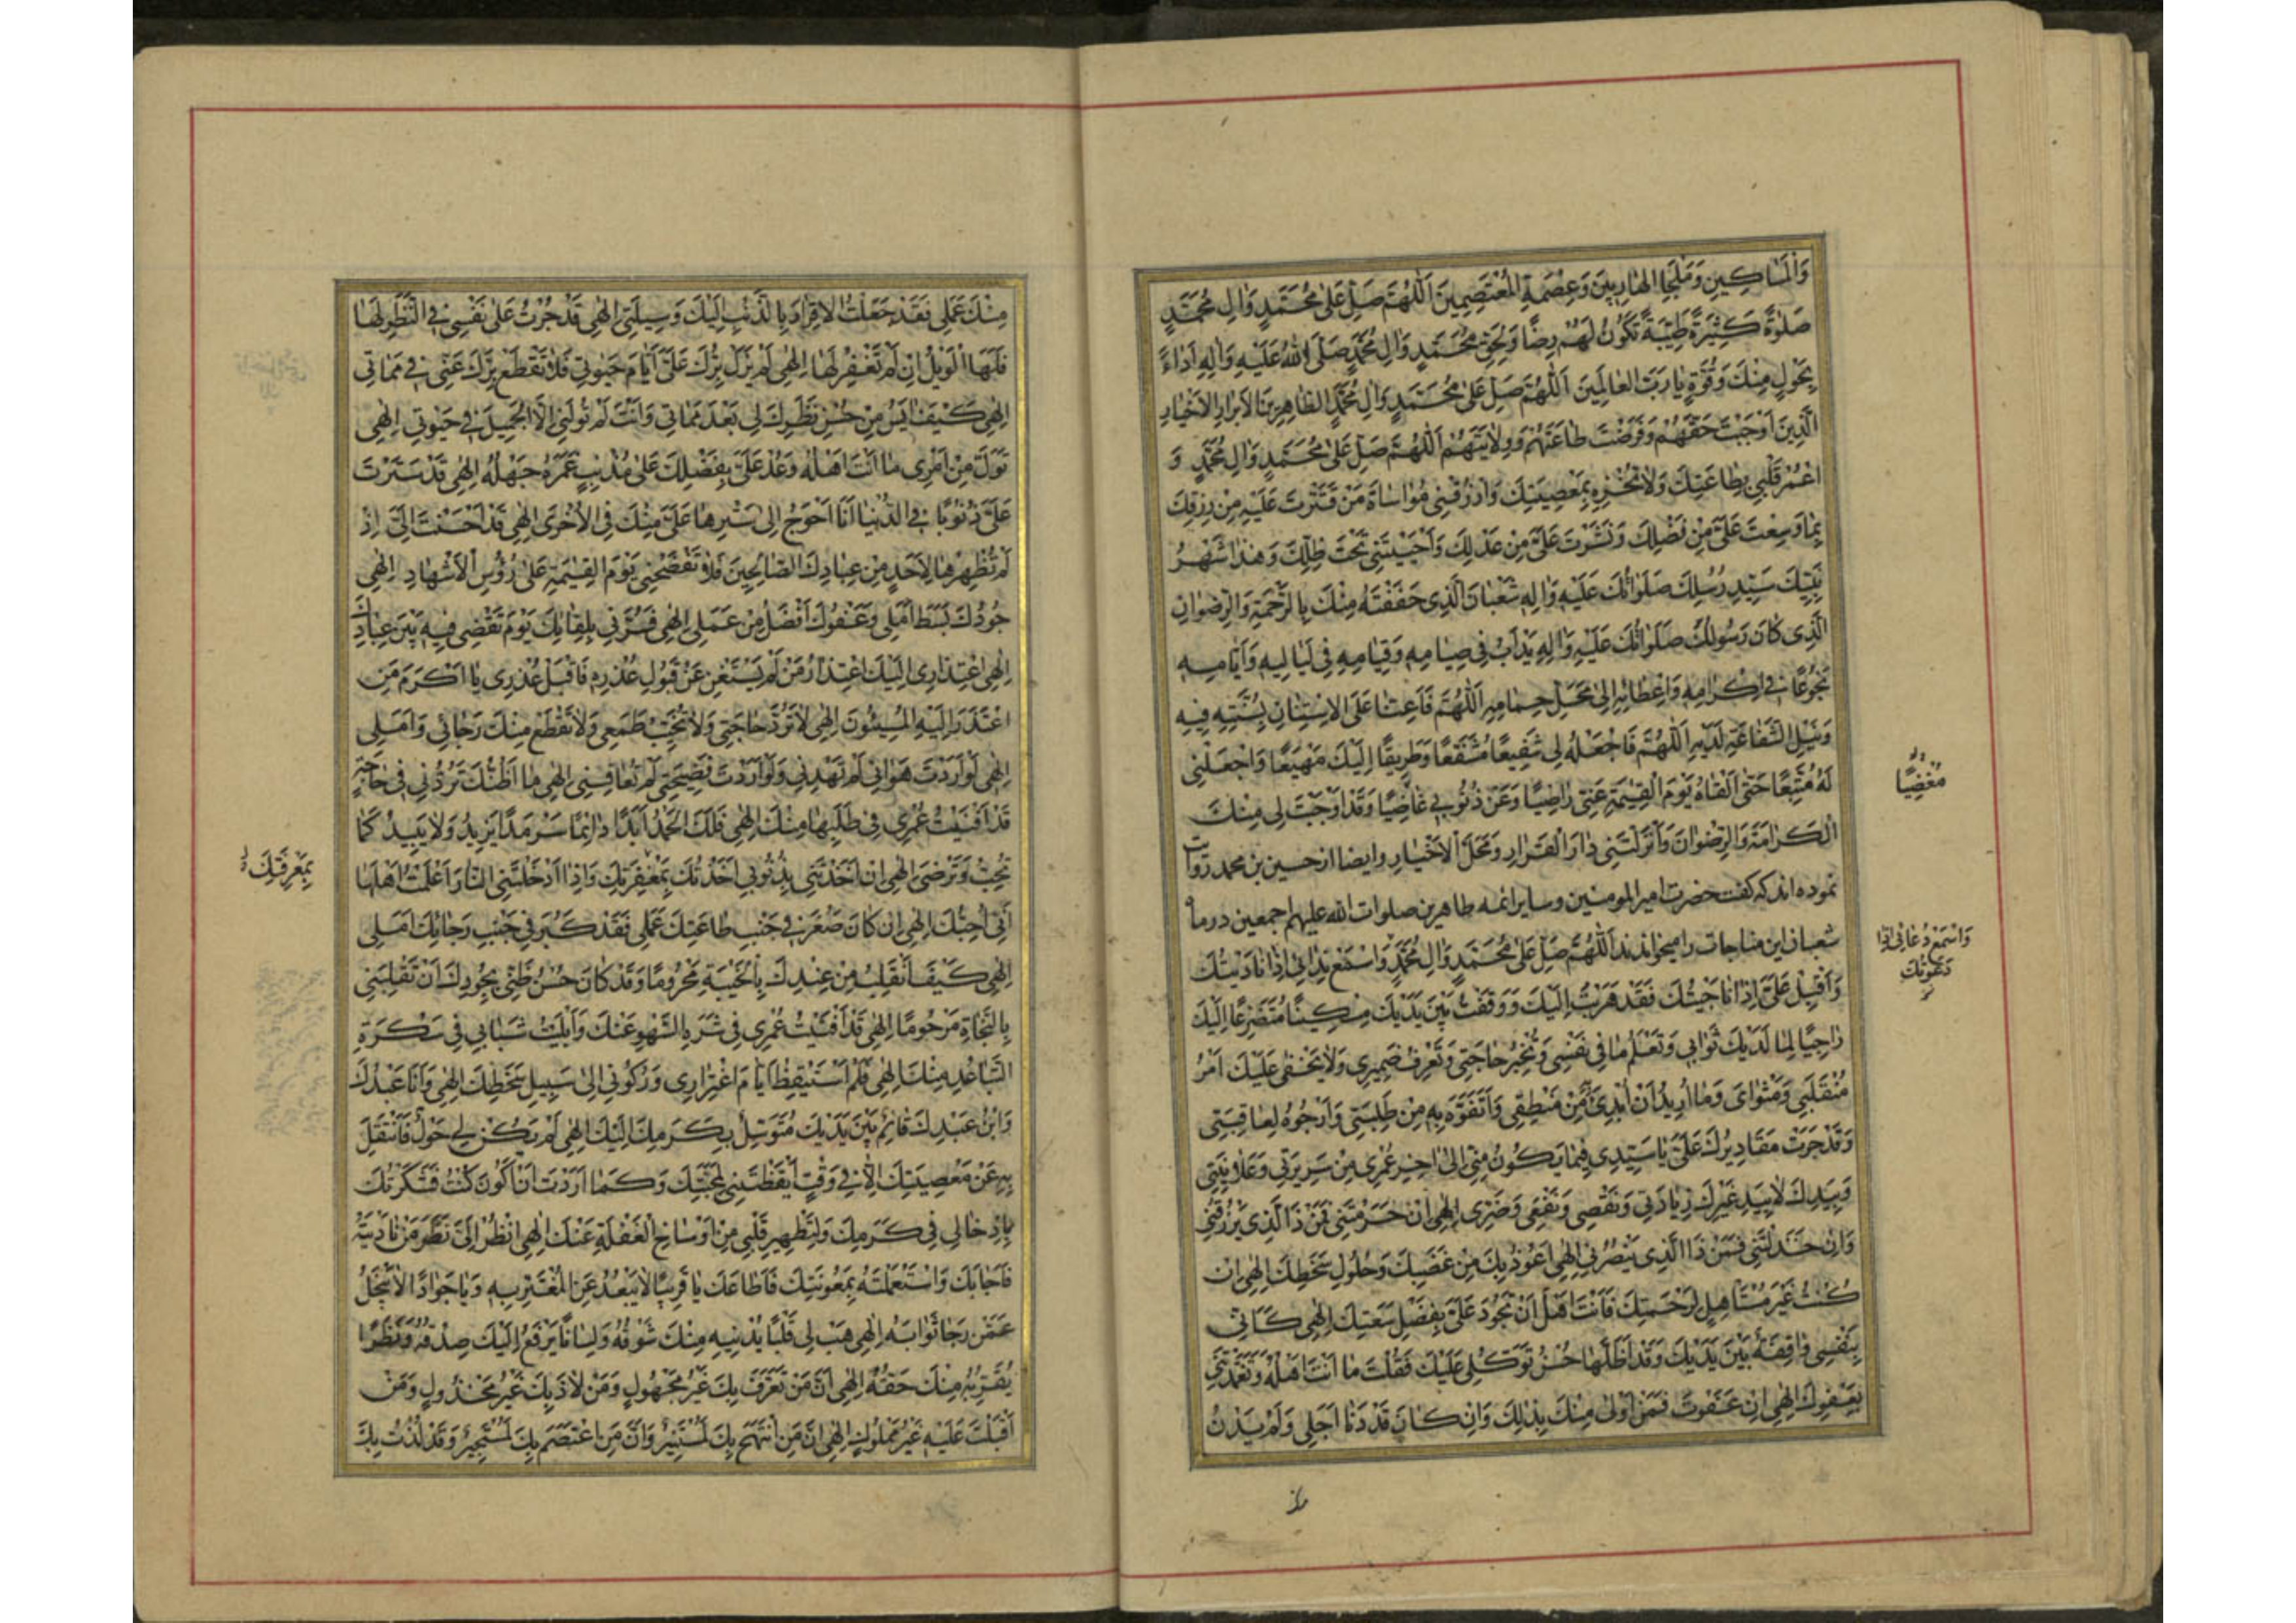 وَالْمَسَاكِينِ وَمَلْجَإِ الهَارِبِينَ وَعِصْمَةِ الْمُعْتَصِمِينَ اَللّٰهُمَّ صَلِّ عَلىٰ مُحَمَّدٍ وَاٰلِ مُحَمَّدٍ
صَلٰوةً كَثِيرَةً طَيِّبَةً تَكُونُ لَهُمْ رِضًا وَلِحَقِّ مُحَمَّدٍ وَاٰلِ مُحَمَّدٍ صَلَّى اللّٰهُ عَلَيْهِ وَاٰلِهِ اَدَاءً
بِحَوْلٍ مِنْكَ وَقُوَّةٍ يٰا رَبَّ العٰالَمِينَ اَللّٰهُمَّ صَلِّ عَلىٰ مُحَمَّدٍ وَاٰلِ مُحَمَّدٍ الطّٰاهِرِينَ الاَبْرٰارِ الاَخْيٰارِ
الَّذِينَ اَوْجَبْتَ حَقَّهُمْ وَفَرَضْتَ طٰاعَتَهُمْ وَوِلاٰيَتَهُمْ اَللّٰهُمَّ صَلِّ عَلىٰ مُحَمَّدٍ وَاٰلِ مُحَمَّدٍ وَ
اعْمُرْ قَلْبِي بِطٰاعَتِكَ وَلاٰ تُخْزِهِ بِمَعْصِيَتِكَ وَارْزُقْنِي مُوٰاسٰاةَ مَنْ قَتَّرْتَ عَلَيْهِ مِنْ رِزْقِكَ
بِمٰا وَسِعْتَ عَلَيَّ مِنْ فَضْلِكَ وَنَشَرْتَ عَلَيَّ مِنْ عَدْلِكَ وَاَحْيَيْتَنِي تَحْتَ ظِلِّكَ وَهٰذَا شَهْرُ
نَبِيِّكَ سَيِّدِ رُسُلِكَ صَلَوٰاتُكَ عَلَيْهِ وَاٰلِهِ شَعْبٰانُ الَّذِي حَفَفْتَهُ مِنْكَ بِالرَّحْمَةِ وَالرِّضْوٰانِ
الَّذِي كٰانَ رَسُولُكَ صَلَوٰاتُكَ عَلَيْهِ وَاٰلِهِ يَدْاَبُ فِي صِيٰامِهِ وَقِيٰامِهِ فِي لَيٰالِيهِ وَاَيّٰامِهِ
بُخُوعًا فِي اِكْرٰامِهِ وَاِعْظٰامِهِ اِلىٰ مَحَلِّ حِمٰامِهِ اَللّٰهُمَّ فَاَعِنّٰا عَلَى الاِسْتِنٰانِ بِسُنَّتِهِ فِيهِ
وَنَيْلِ الشَّفٰاعَةِ لَدَيْهِ اَللّٰهُمَّ فَاجْعَلْهُ لِي شَفِيعًا مُشَفَّعًا وَطَرِيقًا اِلَيْكَ مَهْيَعًا وَاجْعَلْنِي
لَهُ مُتَّبِعًا حَتّٰى اَلْقٰاهُ يَوْمَ القِيٰمَةِ عَنِّي رٰاضِيًا وَعَنْ ذُنُوبِي غٰاضِيًا وَقَدْ اَوْجَبْتَ لِي مِنْكَ
الْكَرٰامَةَ وَالرِّضْوٰانَ وَاَنْزَلْتَنِي دٰارَ الْقَرٰارِ وَمَحَلَّ الاَخْيٰارِ وايضا از حسين بن محمد روايت
نموده اند كه كفت حضرت امير المومنين وساير ائمه طاهرين صلوات الله عليهم اجمعين در ماه
شعبان اين مناجات را ميخواندند اَللّٰهُمَّ صَلِّ عَلىٰ مُحَمَّدٍ وَاٰلِ مُحَمَّدٍ وَاسْمَعْ نِدٰائِي اِذٰا نٰادَيْتُكَ
وَاَقْبِلْ عَلَيَّ اِذٰا نٰاجَيْتُكَ فَقَدْ هَرَبْتُ اِلَيْكَ وَوَقَفْتُ بَيْنَ يَدَيْكَ مِسْكِينًا مُتَضَرِّعًا اِلَيْكَ
رٰاجِيًا لِمٰا لَدَيْكَ ثَوٰابِي وَتَعْلَمُ مٰا فِي نَفْسِي وَتَخْبُرُ حٰاجَتِي وَتَعْرِفُ ضَمِيرِي وَلاٰ يَخْفىٰ عَلَيْكَ اَمْرُ
مُنْقَلَبِي وَمَثْوٰايَ وَمٰا اُرِيدُ اَنْ اُبْدِئَ مِنْ مَنْطِقِي وَاَتَفَوَّهُ بِهِ مِنْ طَلِبَتِي وَاَرْجُوهُ لِعٰاقِبَتِي
وَقَدْ جَرَتْ مَقٰادِيرُكَ عَلَيَّ يٰا سَيِّدِي فِيمٰا يَكُونُ مِنِّي اِلىٰ اٰخِرِ عُمْرِي مِنْ سَرِيرَتِي وَعَلاٰنِيَتِي
وَبِيَدِكَ لاٰ بِيَدِ غَيْرِكَ زِيٰادَتِي وَنَقْصِي وَنَفْعِي وَضَرِّي اِلٰهِي اِنْ حَرَمْتَنِي فَمَنْ ذَا الَّذِي يَرْزُقُنِي
وَاِنْ خَذَلْتَنِي فَمَنْ ذَا الَّذِي يَنْصُرُنِي اِلٰهِي اَعُوذُ بِكَ مِنْ غَضَبِكَ وَحُلُولِ سَخَطِكَ اِلٰهِي اِنْ
كُنْتُ غَيْرَ مُسْتَأْهِلٍ لِرَحْمَتِكَ فَاَنْتَ اَهْلٌ اَنْ تَجُودَ عَلَيَّ بِفَضْلِ سَعَتِكَ اِلٰهِي كَاَنِّي
بِنَفْسِي وٰاقِفَةٌ بَيْنَ يَدَيْكَ وَقَدْ اَظَلَّهٰا حُسْنُ تَوَكُّلِي عَلَيْكَ فَقُلْتَ مٰا اَنْتَ اَهْلُهُ وَتَغَمَّدْتَنِي
بِعَفْوِكَ اِلٰهِي اِنْ عَفَوْتَ فَمَنْ اَوْلىٰ مِنْكَ بِذٰلِكَ وَاِنْ كٰانَ قَدْ دَنٰا اَجَلِي وَلَمْ يَدْنُ
مُغْضِيًا
وَاسْمَعْ دُعٰائِي اِذٰا
دَعَوْتُكَ
مِنْكَ عَمَلِي فَقَدْ جَعَلْتُ الاِقْرٰارَ بِالذَّنْبِ اِلَيْكَ وَسِيلَتِي اِلٰهِي قَدْ جُرْتُ عَلىٰ نَفْسِي فِي النَّظَرِ لَهٰا
فَلَهَا الْوَيْلُ اِنْ لَمْ تَغْفِرْ لَهٰا اِلٰهِي لَمْ يَزَلْ بِرُّكَ عَلَيَّ اَيّٰامَ حَيٰوتِي فَلاٰ تَقْطَعْ بِرَّكَ عَنِّي فِي مَمٰاتِي
اِلٰهِي كَيْفَ اٰيَسُ مِنْ حُسْنِ نَظَرِكَ لِي بَعْدَ مَمٰاتِي وَاَنْتَ لَمْ تُوَلِّنِي اِلاَّ الْجَمِيلَ فِي حَيٰوتِي اِلٰهِي
تَوَلَّ مِنْ اَمْرِي مٰا اَنْتَ اَهْلُهُ وَعُدْ عَلَيَّ بِفَضْلِكَ عَلىٰ مُذْنِبٍ غَمَرَهُ جَهْلُهُ اِلٰهِي قَدْ سَتَرْتَ
عَلَيَّ ذُنُوبًا فِي الدُّنْيٰا اَنَا اَحْوَجُ اِلىٰ سَتْرِهٰا عَلَيَّ مِنْكَ فِي الاُخْرىٰ اِلٰهِي قَدْ اَحْسَنْتَ اِلَيَّ اِذْ
لَمْ تُظْهِرْهٰا لِاَحَدٍ مِنْ عِبٰادِكَ الصّٰالِحِينَ فَلاٰ تَفْضَحْنِي يَوْمَ القِيٰمَةِ عَلىٰ رُؤُسِ الاَشْهٰادِ اِلٰهِي
جُودُكَ بَسَطَ اَمَلِي وَعَفْوُكَ اَفْضَلُ مِنْ عَمَلِي اِلٰهِي فَسُرَّنِي بِلِقٰائِكَ يَوْمَ تَقْضِي فِيهِ بَيْنَ عِبٰادِكَ
اِلٰهِي اعْتِذٰارِي اِلَيْكَ اعْتِذٰارُ مَنْ لَمْ يَسْتَغْنِ عَنْ قَبُولِ عُذْرِهِ فَاقْبَلْ عُذْرِي يٰا اَكْرَمَ مَنِ
اعْتَذَرَ اِلَيْهِ الْمُسِيئُونَ اِلٰهِي لاٰ تَرُدَّ حٰاجَتِي وَلاٰ تُخَيِّبْ طَمَعِي وَلاٰ تَقْطَعْ مِنْكَ رَجٰائِي وَاَمَلِي
اِلٰهِي لَوْ اَرَدْتَ هَوٰانِي لَمْ تَهْدِنِي وَلَوْ اَرَدْتَ فَضِيحَتِي لَمْ تُعٰافِنِي اِلٰهِي مٰا اَظُنُّكَ تَرُدُّنِي فِي حٰاجَةٍ
قَدْ اَفْنَيْتُ عُمْرِي فِي طَلَبِهٰا مِنْكَ اِلٰهِي فَلَكَ الْحَمْدُ اَبَدًا دٰائِمًا سَرْمَدًا يَزِيدُ وَلاٰ يَبِيدُ كَمٰا
تُحِبُّ وَتَرْضىٰ اِلٰهِي اِنْ اَخَذْتَنِي بِذُنُوبِي اَخَذْتُكَ بِمَغْفِرَتِكَ وَاِذٰا اَدْخَلْتَنِي النّٰارَ اَعْلَمْتُ اَهْلَهٰا
اَنِّي اُحِبُّكَ اِلٰهِي اِنْ كٰانَ صَغُرَ فِي جَنْبِ طٰاعَتِكَ عَمَلِي فَقَدْ كَبُرَ فِي جَنْبِ رَجٰائِكَ اَمَلِي
اِلٰهِي كَيْفَ اَنْقَلِبُ مِنْ عِنْدِكَ بِالْخَيْبَةِ مَحْرُومًا وَقَدْ كٰانَ حُسْنُ ظَنِّي بِجُودِكَ اَنْ تَقْلِبَنِي
بِالنَّجٰاةِ مَرْحُومًا اِلٰهِي قَدْ اَفْنَيْتُ عُمْرِي فِي شَرَهِ الشَّهْوِ عَنْكَ وَاَبْلَيْتُ شَبٰابِي فِي سَكْرَةِ
التَّبٰاعُدِ مِنْكَ اِلٰهِي فَلَمْ اَسْتَيْقِظْ اَيّٰامَ اغْتِرٰارِي وَرُكُونِي اِلىٰ سَبِيلِ سَخَطِكَ اِلٰهِي وَاَنَا عَبْدُكَ
وَابْنُ عَبْدِكَ قٰائِمٌ بَيْنَ يَدَيْكَ مُتَوَسِّلٌ بِكَرَمِكَ اِلَيْكَ اِلٰهِي لَمْ يَكُنْ لِي حَوْلٌ فَاَنْتَقِلَ
بِهِ عَنْ مَعْصِيَتِكَ اِلاّٰ فِي وَقْتٍ اَيْقَظْتَنِي لِمَحَبَّتِكَ وَكَمٰا اَرَدْتَ اَنْ اَكُونَ كُنْتُ فَشَكَرْتُكَ
بِاِدْخٰالِي فِي كَرَمِكَ وَلِتَطْهِيرِ قَلْبِي مِنْ اَوْسٰاخِ الْغَفْلَةِ عَنْكَ اِلٰهِي انْظُرْ اِلَيَّ نَظَرَ مَنْ نٰادَيْتَهُ
فَاَجٰابَكَ وَاسْتَعْمَلْتَهُ بِمَعُونَتِكَ فَاَطٰاعَكَ يٰا قَرِيبًا لاٰ يَبْعُدُ عَنِ الْمُغْتَرِّ بِهِ وَيٰا جَوٰادًا لاٰ يَبْخَلُ
عَمَّنْ رَجٰا ثَوٰابَهُ اِلٰهِي هَبْ لِي قَلْبًا يُدْنِيهِ مِنْكَ شَوْقُهُ وَلِسٰانًا يَرْفَعُ اِلَيْكَ صِدْقُهُ وَنَظَرًا
يُقَرِّبُهُ مِنْكَ حَقُّهُ اِلٰهِي اِنَّ مَنْ تَعَرَّفَ بِكَ غَيْرُ مَجْهُولٍ وَمَنْ لاٰذَ بِكَ غَيْرُ مَخْذُولٍ وَمَنْ
اَقْبَلْتَ عَلَيْهِ غَيْرُ مَمْلُوكٍ اِلٰهِي اِنَّ مَنِ انْتَهَجَ بِكَ لَمُسْتَنِيرٌ وَاِنَّ مَنِ اعْتَصَمَ بِكَ لَمُسْتَجِيرٌ وَقَدْ لُذْتُ بِكَ
بِمَعْرِفَتِكَ